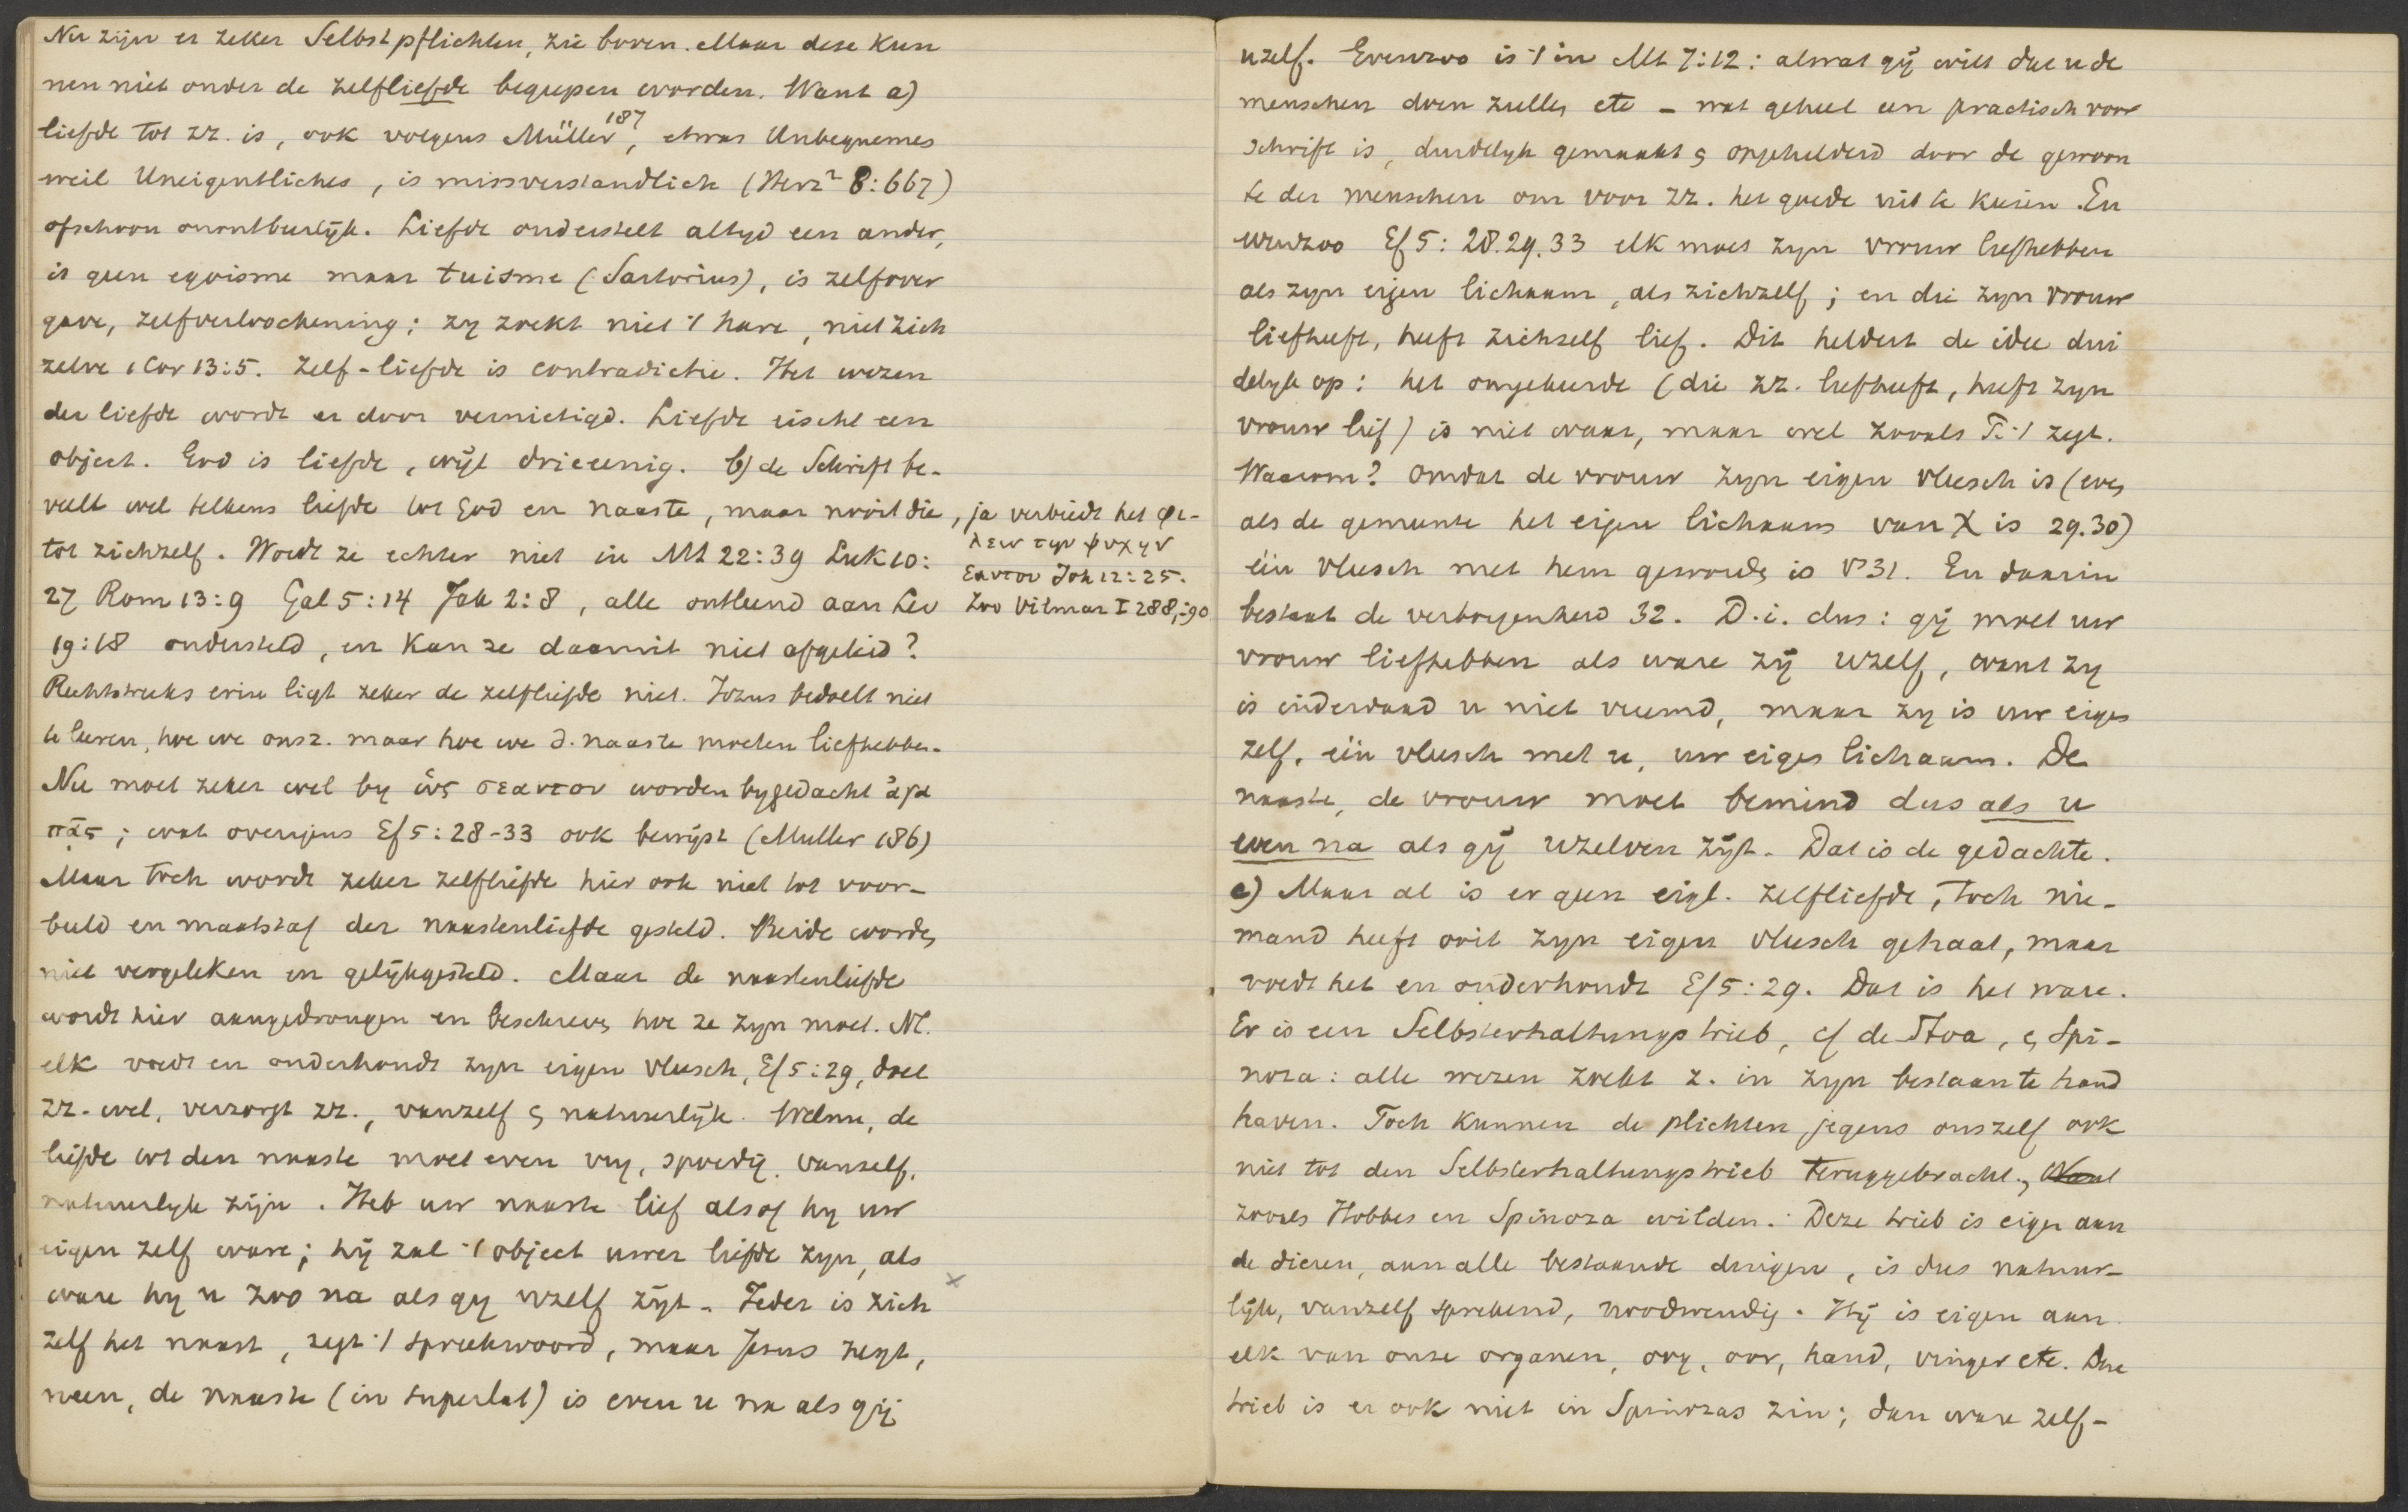 Nu zijn er zeker Selbstpflichten, zie boven. Maar deze kun
nen niet onder de zelfliefde begrepen worden. Want a)
liefde tot zz. is, ook volgens Müller 187, etwas Unbequemes
weil Uneigentliches, is missverstandlich (Herz² 8:667)
ofschoon onontbeerlijk. Liefde onderstelt altyd een ander,
is geen egoisme maar tuisme (Sartorius), is zelfover
gave, zelfverloochening; zy zoekt niet 't hare, niet zich
zelve 1 Cor 13:5. Zelf-liefde is contradictie. Het wezen
der liefde wordt er door vernietigd. Liefde eischt een
object. God is liefde, wijl drieeenig. b) de Schrift be-
veelt wel telkens liefde tot God en naaste, maar nooit die
tot zichzelf. Wordt ze echter niet in Mt 22:39 Luk 10:
27 Rom 13:9 Gal 5:14 Jak 2:8, alle ontleend aan Lev
19:18 ondersteld, en kan ze daaruit niet afgeleid?
Rechtstreeks erin ligt zeker de zelfliefde niet. Jezus bedoelt niet
te leeren, hoe we onsz. maar hoe we d. naaste moeten liefhebben.
Nu moet zeker wel by ὡς σεαυτον worden bygedacht ἀγα
πᾳς; wat overigens Ef 5:28-33 ook bewijst (Muller 186)
Maar toch wordt zeker zelfliefde hier ook niet tot voor-
beeld en maatstaf der naastenliefde gesteld. Beide worden
niet vergeleken en gelijkgesteld. Maar de naastenliefde
wordt hier aangedrongen en beschreven, hoe ze zyn moet. Nl.
elk voedt en onderhoudt zyn eigen vleesch, Ef 5:29, doet
zz. wel, verzorgt zz., vanzelf en natuurlijk. Welnu, de
liefde tot den naaste moet even vry, spoedig, vanzelf,
natuurlyk zijn. Heb uw naaste lief alsof hy uw
eigen zelf ware; hij zal 't object uwer liefde zyn, als
ware hy u zoo na als gy uzelf zijt. Ieder is zich
zelf het naast, zegt 't spreekwoord, maar Jesus zegt,
neen, de naaste (in superlat) is even u na als gij
, ja verbiedt het φι-
λειν την ψυχην
εαυτου Joh 12:25.
Zoo Vilmar I 288,-90
uzelf. Evenzoo is 't in Mt 7:12: alwat gij wilt dat u de
menschen doen zullen etc – wat geheel een practisch voor
schrift is, duidelyk gemaakt en opgehelderd door de gewoon
te der menschen om voor zz. het goede uit te kiezen. En
evenzoo Ef 5:28.29.33 elk moet zyn vrouw liefhebben
als zyn eigen lichaam, als zichzelf; en die zyn vrouw
liefheeft, heeft zichzelf lief. Dit heldert de idee dui
delyk op: het omgekeerde (die zz. liefheeft, heeft zyn
vrouw lief) is niet waar, maar wel zooals P. 't zegt.
Waarom? omdat de vrouw zyn eigen vleesch is (even
als de gemeente het eigen lichaam van X is 29.30)
één vleesch met hem geworden is v 31. En daarin
bestaat de verborgenheid 32. D.i. dus: gij moet uw
vrouw liefhebben als ware zij uzelf, want zy
is inderdaad u niet vreemd, maar zy is uw eigen
zelf, één vleesch met u, uw eigen lichaam. De
naaste, de vrouw moet bemind dus als u
even na als gij uzelven zijt. Dat is de gedachte.
c) Maar al is er geen eigl. zelfliefde, toch nie-
mand heeft ooit zyn eigen vleesch gehaat, maar
voedt het en onderhoudt Ef 5:29. Dat is het ware.
Er is een Selbsterhaltungstrieb, cf de Stoa, en Spi-
noza: alle wezen zoekt z. in zyn bestaan te hand
haven. Toch kunnen de plichten jegens onszelf ook
niet tot den Selbsterhaltungstrieb teruggebracht, Want
zooals Hobbes en Spinoza wilden. Deze trieb is eigen aan
de dieren, aan alle bestaande dingen, is dus natuur-
lijk, vanzelf sprekend, noodwendig. Hij is eigen aan
elk van onze organen, oog, oor, hand, vinger etc. Die
trieb is er ook niet in Spinozas zin; dan ware zelf-